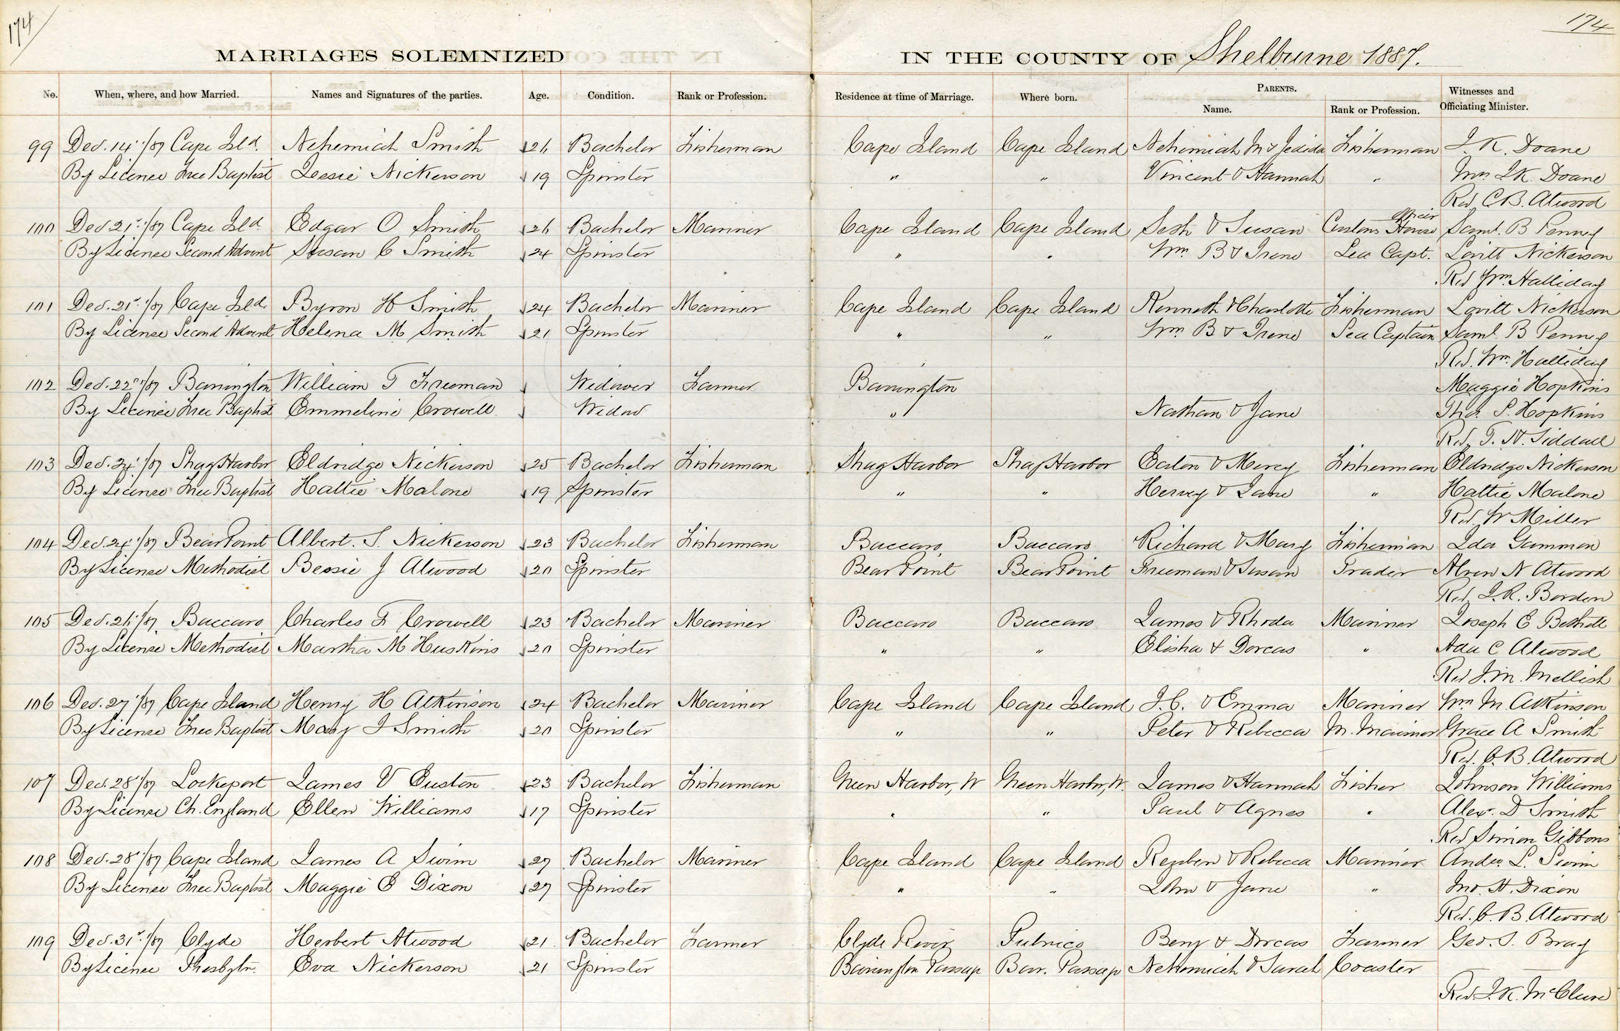 174
174
MARRIAGES SOLEMNIZED IN THE COUNTY OF Shelburne 1887.
No. When, where, and how Married. Names and Signatures of the parties. Age. Condition. Rank or Profession. Residence at time of Marriage. Where born. PARENTS. Name. Rank or Profession. Witnesses and Officiating Minister.
99 Dec. 14th/87 Cape Isld Nehemiah Smith 26 Bachelor Fisherman Cape Island Cape Island Nehemiah M & Jedida Fisherman J. K. Doane
By License Free Baptist Jessie Nickerson 19 Spinster " " Vincent & Hannah " Mrs J.K. Doane
Rev C.B. Atwood
100 Dec. 21st/87 Cape Isld Edgar O Smith 26 Bachelor Mariner Cape Island Cape Island Seth & Susan Custom House Officer Saml. B Penney
By License Second Advent Susan C Smith 24 Spinster " " Wm B & Irene Sea Capt. Lovitt Nickerson
Rev Wm Halliday
101 Dec. 21st/87 Cape Isld Byron H Smith 24 Bachelor Mariner Cape Island Cape Island Kenneth & Charlotte Fisherman Lovitt Nickerson
By License Second Advent Helena M Smith 21 Spinster " " Wm B & Irene Sea Captain Saml. B Penney
Rev. Wm Halliday
102 Dec. 22nd/87 Barrington William T Freeman Widower Farmer Barrington Maggie Hopkins
By License Free Baptist Emmeline Crowell Widow " Nathan & Jane Thos S. Hopkins
Rev. T. H. Siddall
103 Dec. 24th/87 Shag Harbor Eldridge Nickerson 25 Bachelor Fisherman Shag Harbor Shag Harbor Eaton & Mercy Fisherman Eldridge Nickerson
By License Free Baptist Hattie Malone 19 Spinster " " Hervey & Jane " Hattie Malone
Rev. W Miller
104 Dec. 24th/87 Bear Point Albert. S Nickerson 23 Bachelor Fisherman Baccaro Baccaro Richard & Mary Fisherman Ida Gammon
By License Methodist Bessie J Atwood 20 Spinster Bear Point Bear Point Freeman & Susan Trader Alvin N Atwood
Rev. J. R. Borden
105 Dec. 26th/87 Baccaro Charles F Crowell 23 Bachelor Mariner Baccaro Baccaro James & Rhoda Mariner Joseph E Bethell
By License Methodist Martha M Huskins 20 Spinster " " Elisha & Dorcas " Ada C Atwood
Rev J. M. Mellish
106 Dec. 27th/87 Cape Island Henry H Atkinson 24 Bachelor Mariner Cape Island Cape Island J. C. & Emma Mariner Wm M Atkinson
By License Free Baptist Mary J Smith 20 Spinster " " Peter & Rebecca M. Mariner Grace A Smith
Rev. C. B. Atwood
107 Dec. 28th/87 Lockeport James V Euston 23 Bachelor Fisherman Green Harbor, W Green Harbor, W. James & Hannah Fisher Johnson Williams
By License Ch. England Ellen Williams 17 Spinster " " Paul & Agnes " Alex. D Smith
Rev Simon Gibbons
108 Dec. 28th/87 Cape Island James A Swim 27 Bachelor Mariner Cape Island Cape Island Reuben & Rebecca Mariner Andw L. Swim
By License Free Baptist Maggie E Dixon 27 Spinster " " John & Jane " Jno. H. Dixon
Rev. C. B. Atwood
109 Dec. 31st/87 Clyde Herbert Atwood 21 Bachelor Farmer Clyde River Pubnico Benj & Dorcas Farmer Geo. S. Bray
By License Presbytn. Eva Nickerson 21 Spinster Barrington Passage Barr. Passage Nehemiah & Sarah Coaster
Rev. J. K. McClure